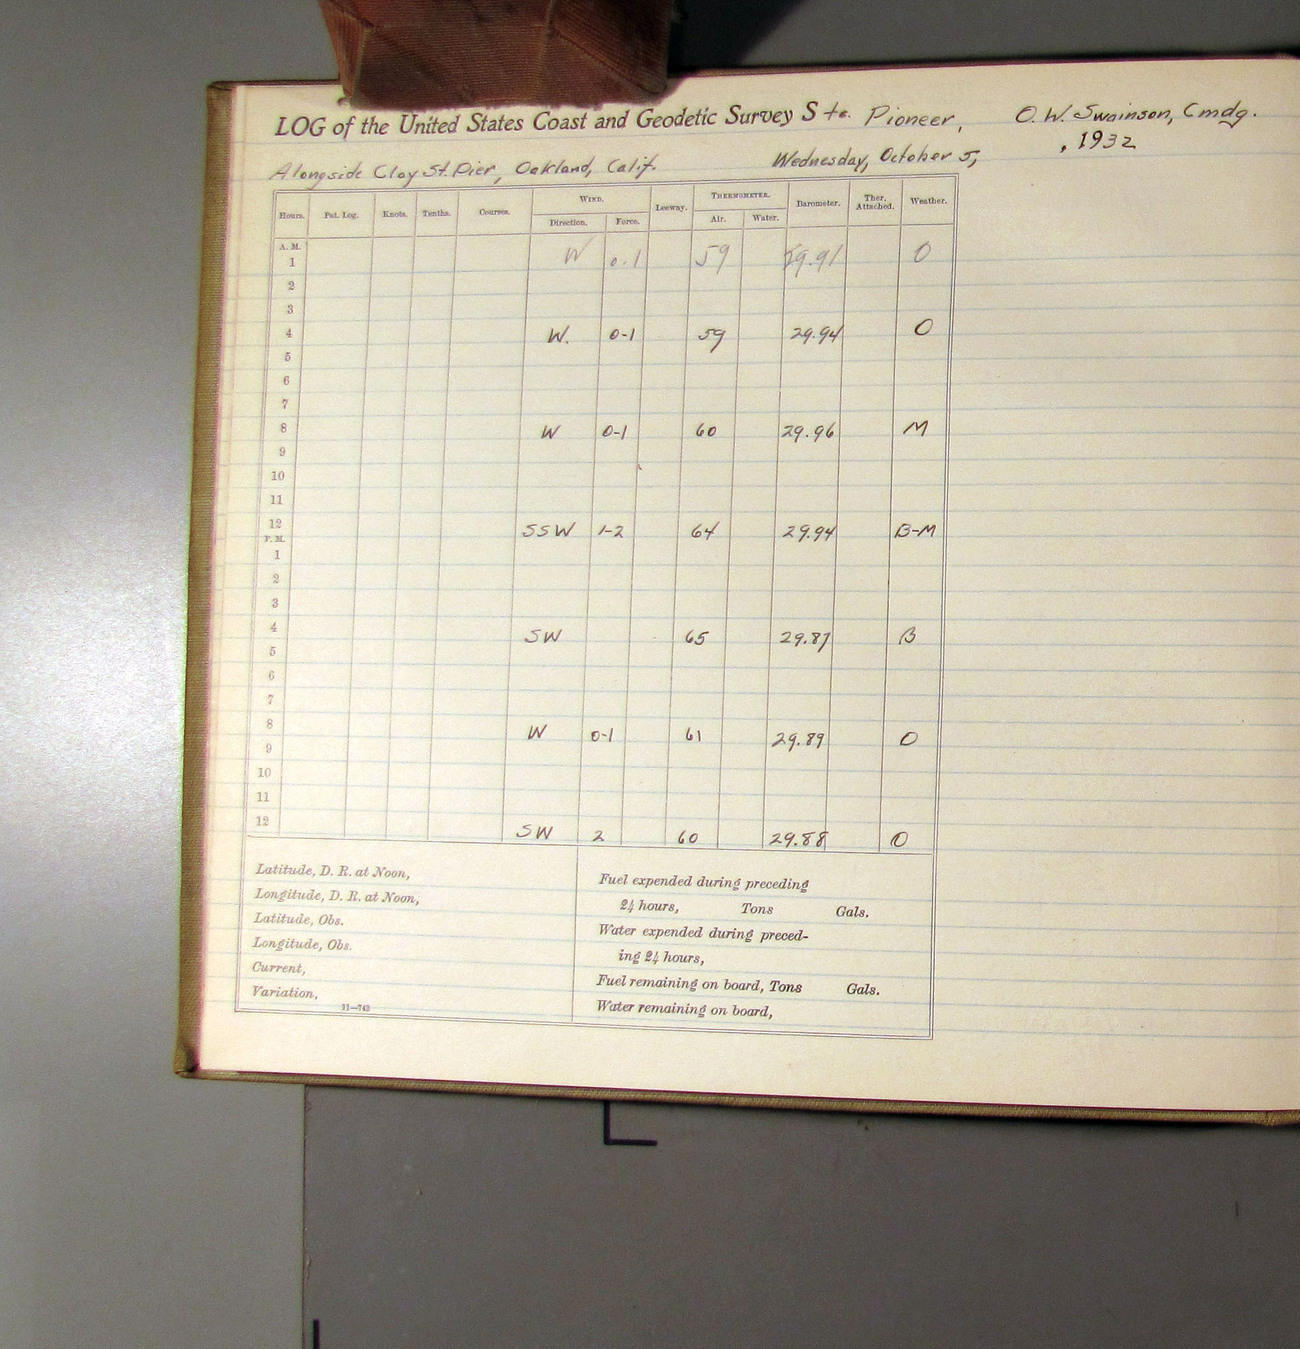 LOG of the United States Coast and Geodetic Survey Str. Pioneer, O. W. Swainson, Cmdg.
Alongside Clay St. Pier, Oakland, Calif. Wednesday, October 5, , 1932
Hours. Pat. Log. Knots. Tenths. Courses. WIND. Leeway. THERMOMETER. Barometer. Ther. Attached. Weather.
Direction. Force. Air. Water.
A. M.
1 W 0-1 59 29.91 O
2
3
4 W. 0-1 59 29.94 O
5
6
7
8 W 0-1 60 29.96 M
9
10
11
12 SSW 1-2 64 29.94 B-M
P. M.
1
2
3
4 SW 65 29.87 B
5
6
7
8 W 0-1 61 29.89 O
9
10
11
12 SW 2 60 29.88 O
Latitude, D. R. at Noon,
Longitude, D. R. at Noon,
Latitude, Obs.
Longitude, Obs.
Current,
Variation,
11—743
Fuel expended during preceding
24 hours, Tons Gals.
Water expended during preced-
ing 24 hours,
Fuel remaining on board, Tons Gals.
Water remaining on board,